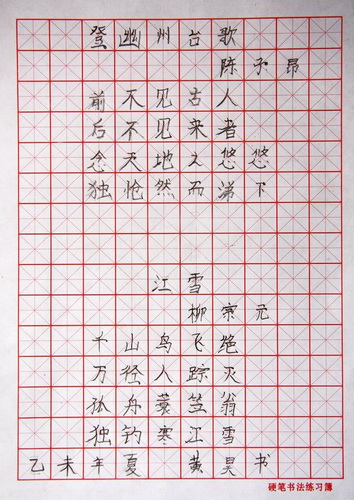 登幽州台歌
陈子昂
前不见古人
后不见来者
念天地之悠悠
独怆然而涕下
江雪
柳宗元
千山鸟飞绝
万径人踪灭
孤舟蓑笠翁
独钓寒江雪
乙未年夏 黄昊书
硬笔书法练习簿